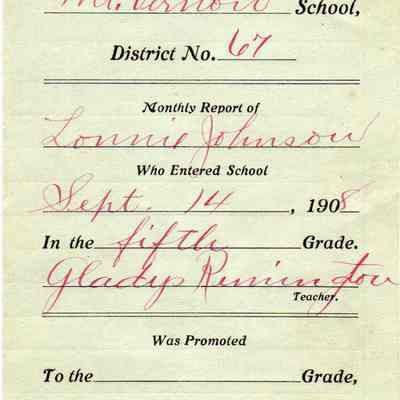 Mt. Vernon School,
District No. 67
Monthly Report of
Lonnie Johnson
Who Entered School
Sept. 14, 1908
In the fifth Grade.
Gladys Remington
Teacher.
Was Promoted
To the Grade,